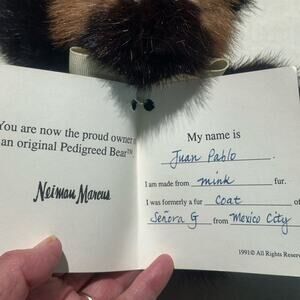 You are now the proud owner
an original Pedigreed Bear™.
Neiman Marcus
My name is
Juan Pablo.
I am made from mink fur.
I was formerly a fur Coat of
Señora G from Mexico City
1991© All Rights Reserve